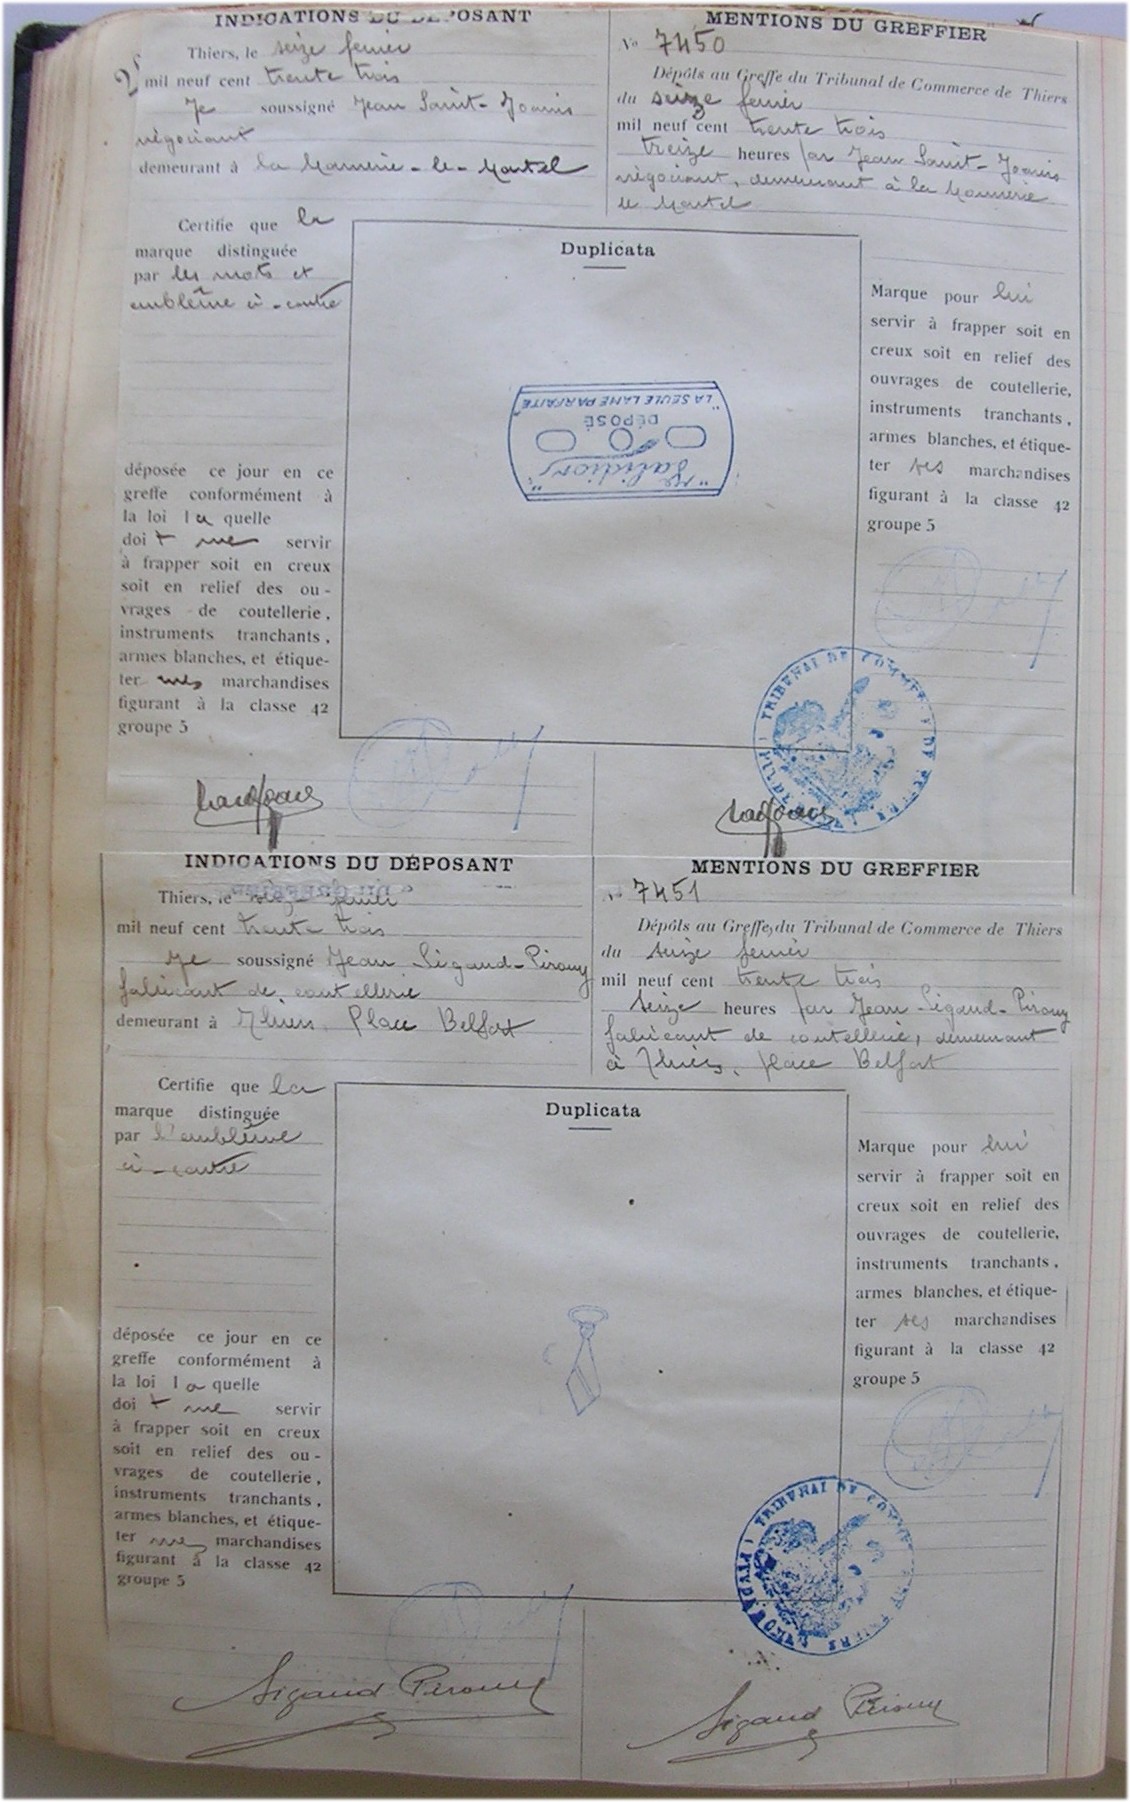 INDICATIONS DU DÉPOSANT
Thiers, le seize fevrier
mil neuf cent trente trois
Je soussigné Jean Saint-Joanis
négociant
demeurant à la Monnerie-le-Montel
Certifie que la
marque distinguée
par les mots et
emblême ci-contre
déposée ce jour en ce
greffe conformément à
la loi la quelle
doit me servir
à frapper soit en creux
soit en relief des ou-
vrages de coutellerie,
instruments tranchants,
armes blanches, et étique-
ter mes marchandises
figurant à la classe 42
groupe 5
MENTIONS DU GREFFIER
No 7450
Dépôts au Greffe du Tribunal de Commerce de Thiers
du seize fevrier
mil neuf cent trente trois
treize heures par Jean Saint-Joanis
négociant, demeurant à la Monnerie
le Montel
Duplicata
"LA SEULE LAME PARFAITE"
DÉPOSÉ
Marque pour lui
servir à frapper soit en
creux soit en relief des
ouvrages de coutellerie,
instruments tranchants,
armes blanches, et étique-
ter ses marchandises
figurant à la classe 42
groupe 5
TRIBUNAL DE COMMERCE DE THIERS
INDICATIONS DU DÉPOSANT
DU GREFFIER
Thiers, le seize fevrier
mil neuf cent trente trois
Je soussigné Jean Sigaud-Pirouy
fabricant de coutellerie
demeurant à Thiers, Place Belfort
Certifie que la
marque distinguée
par l'emblême
ci-contre
déposée ce jour en ce
greffe conformément à
la loi la quelle
doit me servir
à frapper soit en creux
soit en relief des ou-
vrages de coutellerie,
instruments tranchants,
armes blanches, et étique-
ter mes marchandises
figurant à la classe 42
groupe 5
Sigaud Pirouy
MENTIONS DU GREFFIER
No 7451
Dépôts au Greffe du Tribunal de Commerce de Thiers
du seize fevrier
mil neuf cent trente trois
seize heures par Jean Sigaud-Pirouy
fabricant de coutellerie, demeurant
à Thiers, place Belfort
Duplicata
Marque pour lui
servir à frapper soit en
creux soit en relief des
ouvrages de coutellerie,
instruments tranchants,
armes blanches, et étique-
ter ses marchandises
figurant à la classe 42
groupe 5
TRIBUNAL DE COMMERCE DE THIERS
Sigaud Pirouy